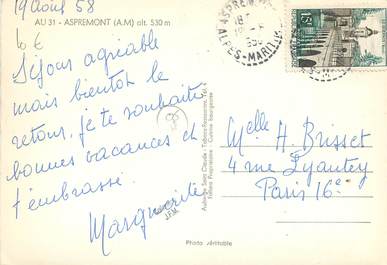 19 août 58
AU 31 - ASPREMONT (A.M) alt. 530 m
6€
Séjour agréable
mais bientôt le
retour, je te souhaite
bonnes vacances et
t'embrasse.
Marguerite
ASPREMONT
ALPES-MARITIMES
Auberge Saint Claude - Tabacs-Restaurant, Tél.
Propriétaire Cuisine bourgeoise
JFM
Photo véritable
15F
Melle H. Brisset
4 rue Lyautey
Paris 16e